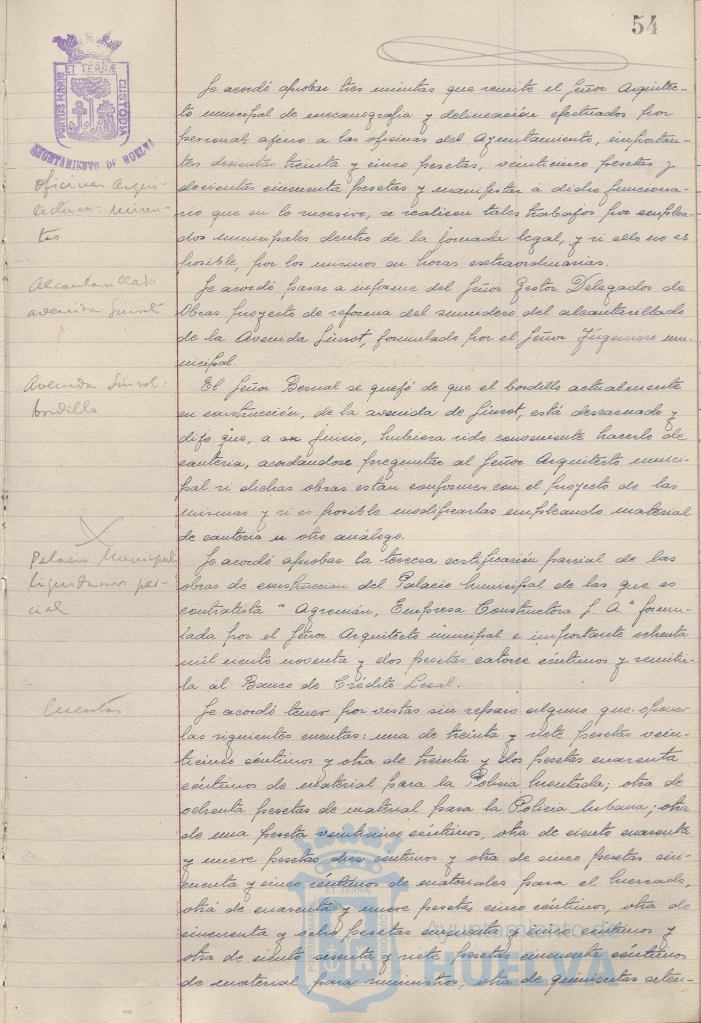 54
PORTUS MARIS
ET TERRÆ
CUSTODIA
AYUNTAMIENTO DE HUELVA
Se acordó aprobar tres minutas que remite el Señor Arquitec-
to municipal de mecanografia y delineación efectuados por
personal ajeno a las oficinas del Ayuntamiento, importan-
tes doscientas treinta y cinco pesetas, veinticinco pesetas y
doscientas cincuenta pesetas y manifestar a dicho funciona-
rio que en lo sucesivo, se realicen tales trabajos por emplea-
dos municipales dentro de la jornada legal, y si ello no es
posible, por los mismos en horas extraordinarias.
Oficinas Arqui-
minu-
tas
Se acordó pasar a informe del Señor Gestor Delegados de
Obras proyecto de reforma del sumidero del alcantarillado
de la Avenida Siurot, formulado por el Señor Ingeniero mu-
nicipal.
Alcantarillado
avenida Siurot
El Señor Bernal se quejó de que el bordillo actualmente
en construcción, de la avenida de Siurot, está descarnado y
dijo que, a su juicio, hubiera sido conveniente hacerlo de
cantería, acordandose preguntar al Señor Arquitecto munici-
pal si dichas obras están conformes con el proyecto de las
mismas y si es posible modificarlas empleando material
de cantería u otro análogo.
Avenida Siurot:
bordillo
Se acordó aprobar la tercera certificación parcial de las
obras de construccion del Palacio Municipal de las que es
contratista "Agroman, Empresa Constructora S. A." formu-
lada por el Señor Arquitecto municipal e importante ochenta
mil ciento noventa y dos pesetas catorce céntimos y remitir-
la al Banco de Crédito Local.
Palacio Municipal
liquidacion par-
cial
Se acordó tener por vistas sin reparo alguno que oponer
las siguientes cuentas: una de treinta y siete pesetas vein-
ticinco céntimos y otra de treinta y dos pesetas cuarenta
céntimos de material para la Policia Montada; otra de
ochenta pesetas de material para la Policia Urbana; otra
de una peseta veinticinco céntimos, otra de ciento cuarenta
y nueve pesetas diez céntimos y otra de cinco pesetas cin-
cuenta y cinco céntimos de materiales para el Mercado,
otra de cuarenta y nueve pesetas cinco céntimos, otra de
cincuenta y ocho pesetas cincuenta y cinco céntimos y
otra de ciento sesenta y siete pesetas cincuenta céntimos
de material para suministros, otra de quinientas seten-
Cuentas
PORTUS MARIS
ET TERRA
CUSTODIA
Ayuntamiento de
HUELVA